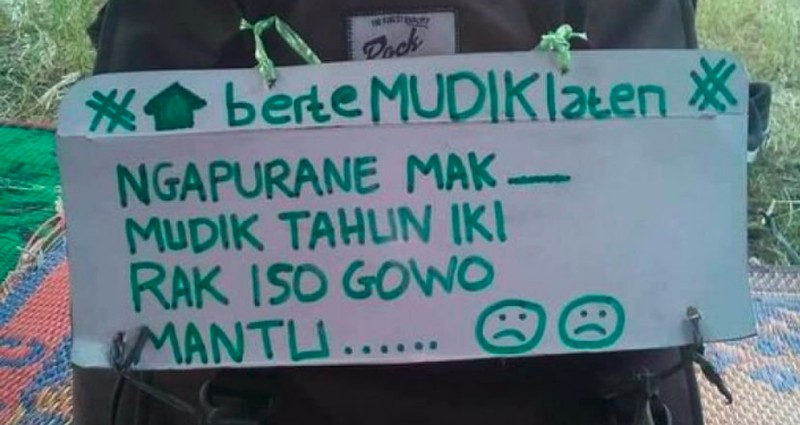 THE FINEST QUALITY
Rock
# berteMUDIKlaten #
NGAPURANE MAK —
MUDIK TAHUN IKI
RAK ISO GOWO
MANTU......